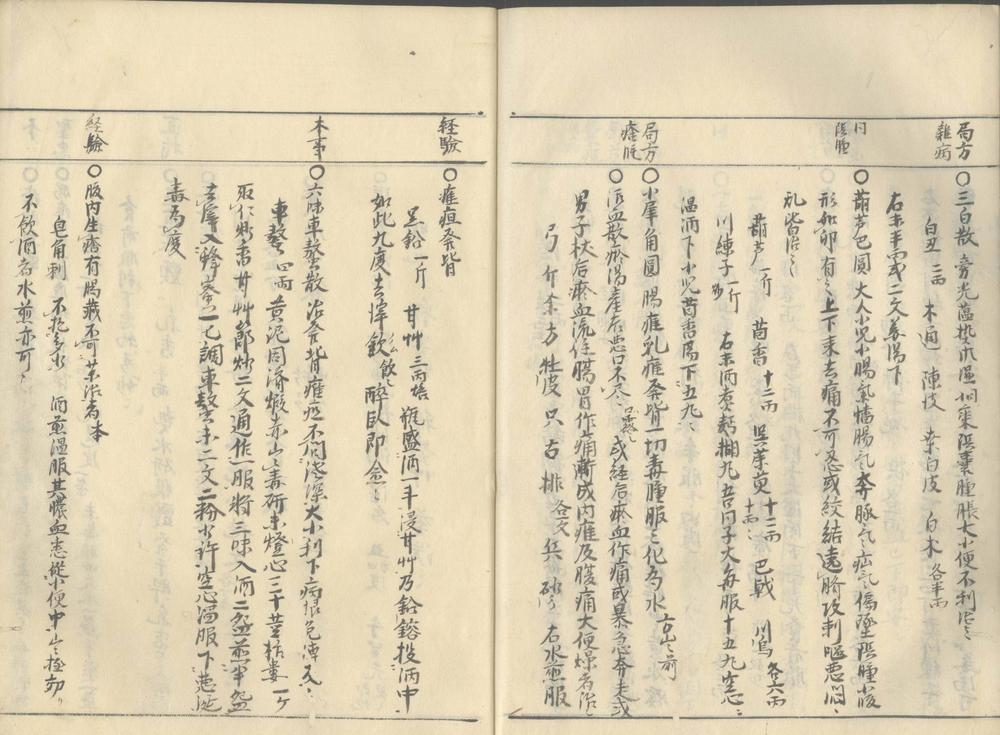 局方
雜病
○三白散 旁光蘊熱氷濕相乘陰嚢腫脹大小便不利治之
白丑二両 木通 陳皮 桑白皮 白朮各半両
右末半両或二文姜湯下
同
陰腫
○葫芦巴圓 大人小児小腸氣慉腸氣奔豚氣疝氣偏墜陰腫小腹
形如卵有之上下来去痛不可忍或絞結遶臍攻刺嘔悪悶
乱皆治之
葫芦一斤 茴香十二両 呉茱萸十二両 巴戟 川烏各六両
川練子一斤 右末酒煮麪糊丸吾同子大毎服十五丸空心
温酒下小児茴香湯下五丸
局方
瘡
○小犀角圓 腸癰乳癰発背一切毒腫服之化為水方出前
○活血散 瘀 湯産后悪口不尽 或経后瘀血作痛或暴急奔走或
男子杖后瘀血流住腸胃作痛漸成内癰及腹痛大便燥者治之
弓 斤 余 方 牡 皮 只 古 排各文 兵 砂 右水煎服
経驗
○癰疽発背
黒鉛一斤 甘艸三両 瓶盛酒一斗浸甘艸乃鉛鎔投酒中
如此九度去滓飲 醉臥即愈
本事
○六味車螯散 治発背癰疽不問浅深大小利下病根免傳久
車螯四両 黄泥固済煆赤出毒研末燈心三十茎栝蔞一ケ
取仁炒香甘艸節炒二文通作一服将三味入酒二盞煎半盞
去滓入蜂蜜一匕調車螯末二文 粉少許空心温服下悪涎
毒為度
経驗
○腹内生瘡有腸蔵不可薬治者本
皂角刺 不拘多少 酒煎温服其膿血悉從小便中出極効
不飲酒者水煎亦可